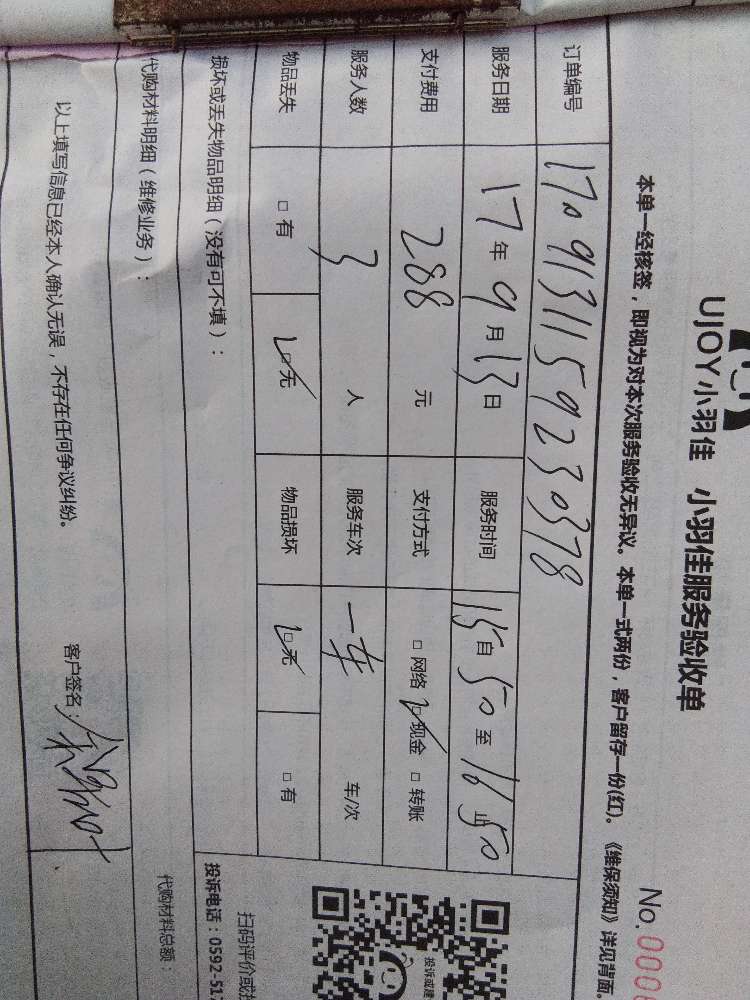 UJOY小羽佳 小羽佳服务验收单
No.000
本单一经核签，即视为对本次服务验收无异议。本单一式两份，客户留存一份(红)。《维保须知》详见背面
订单编号 170913115923037​8
服务日期 17年9月13日 服务时间 15自50至16止50
支付费用 288 元 支付方式 □ 网络 ☑ 现金 □ 转账
服务人数 3 人 服务车次 一车 车/次
物品丢失 □ 有 ☑ 无 物品损坏 ☑ 无 □ 有
损坏或丢失物品明细（没有可不填）：
扫码评价或
投诉电话：0592-51
投诉或建
代购材料明细（维修业务）：
代购材料总额
以上填写信息已经本人确认无误，不存在任何争议纠纷。 客户签名：